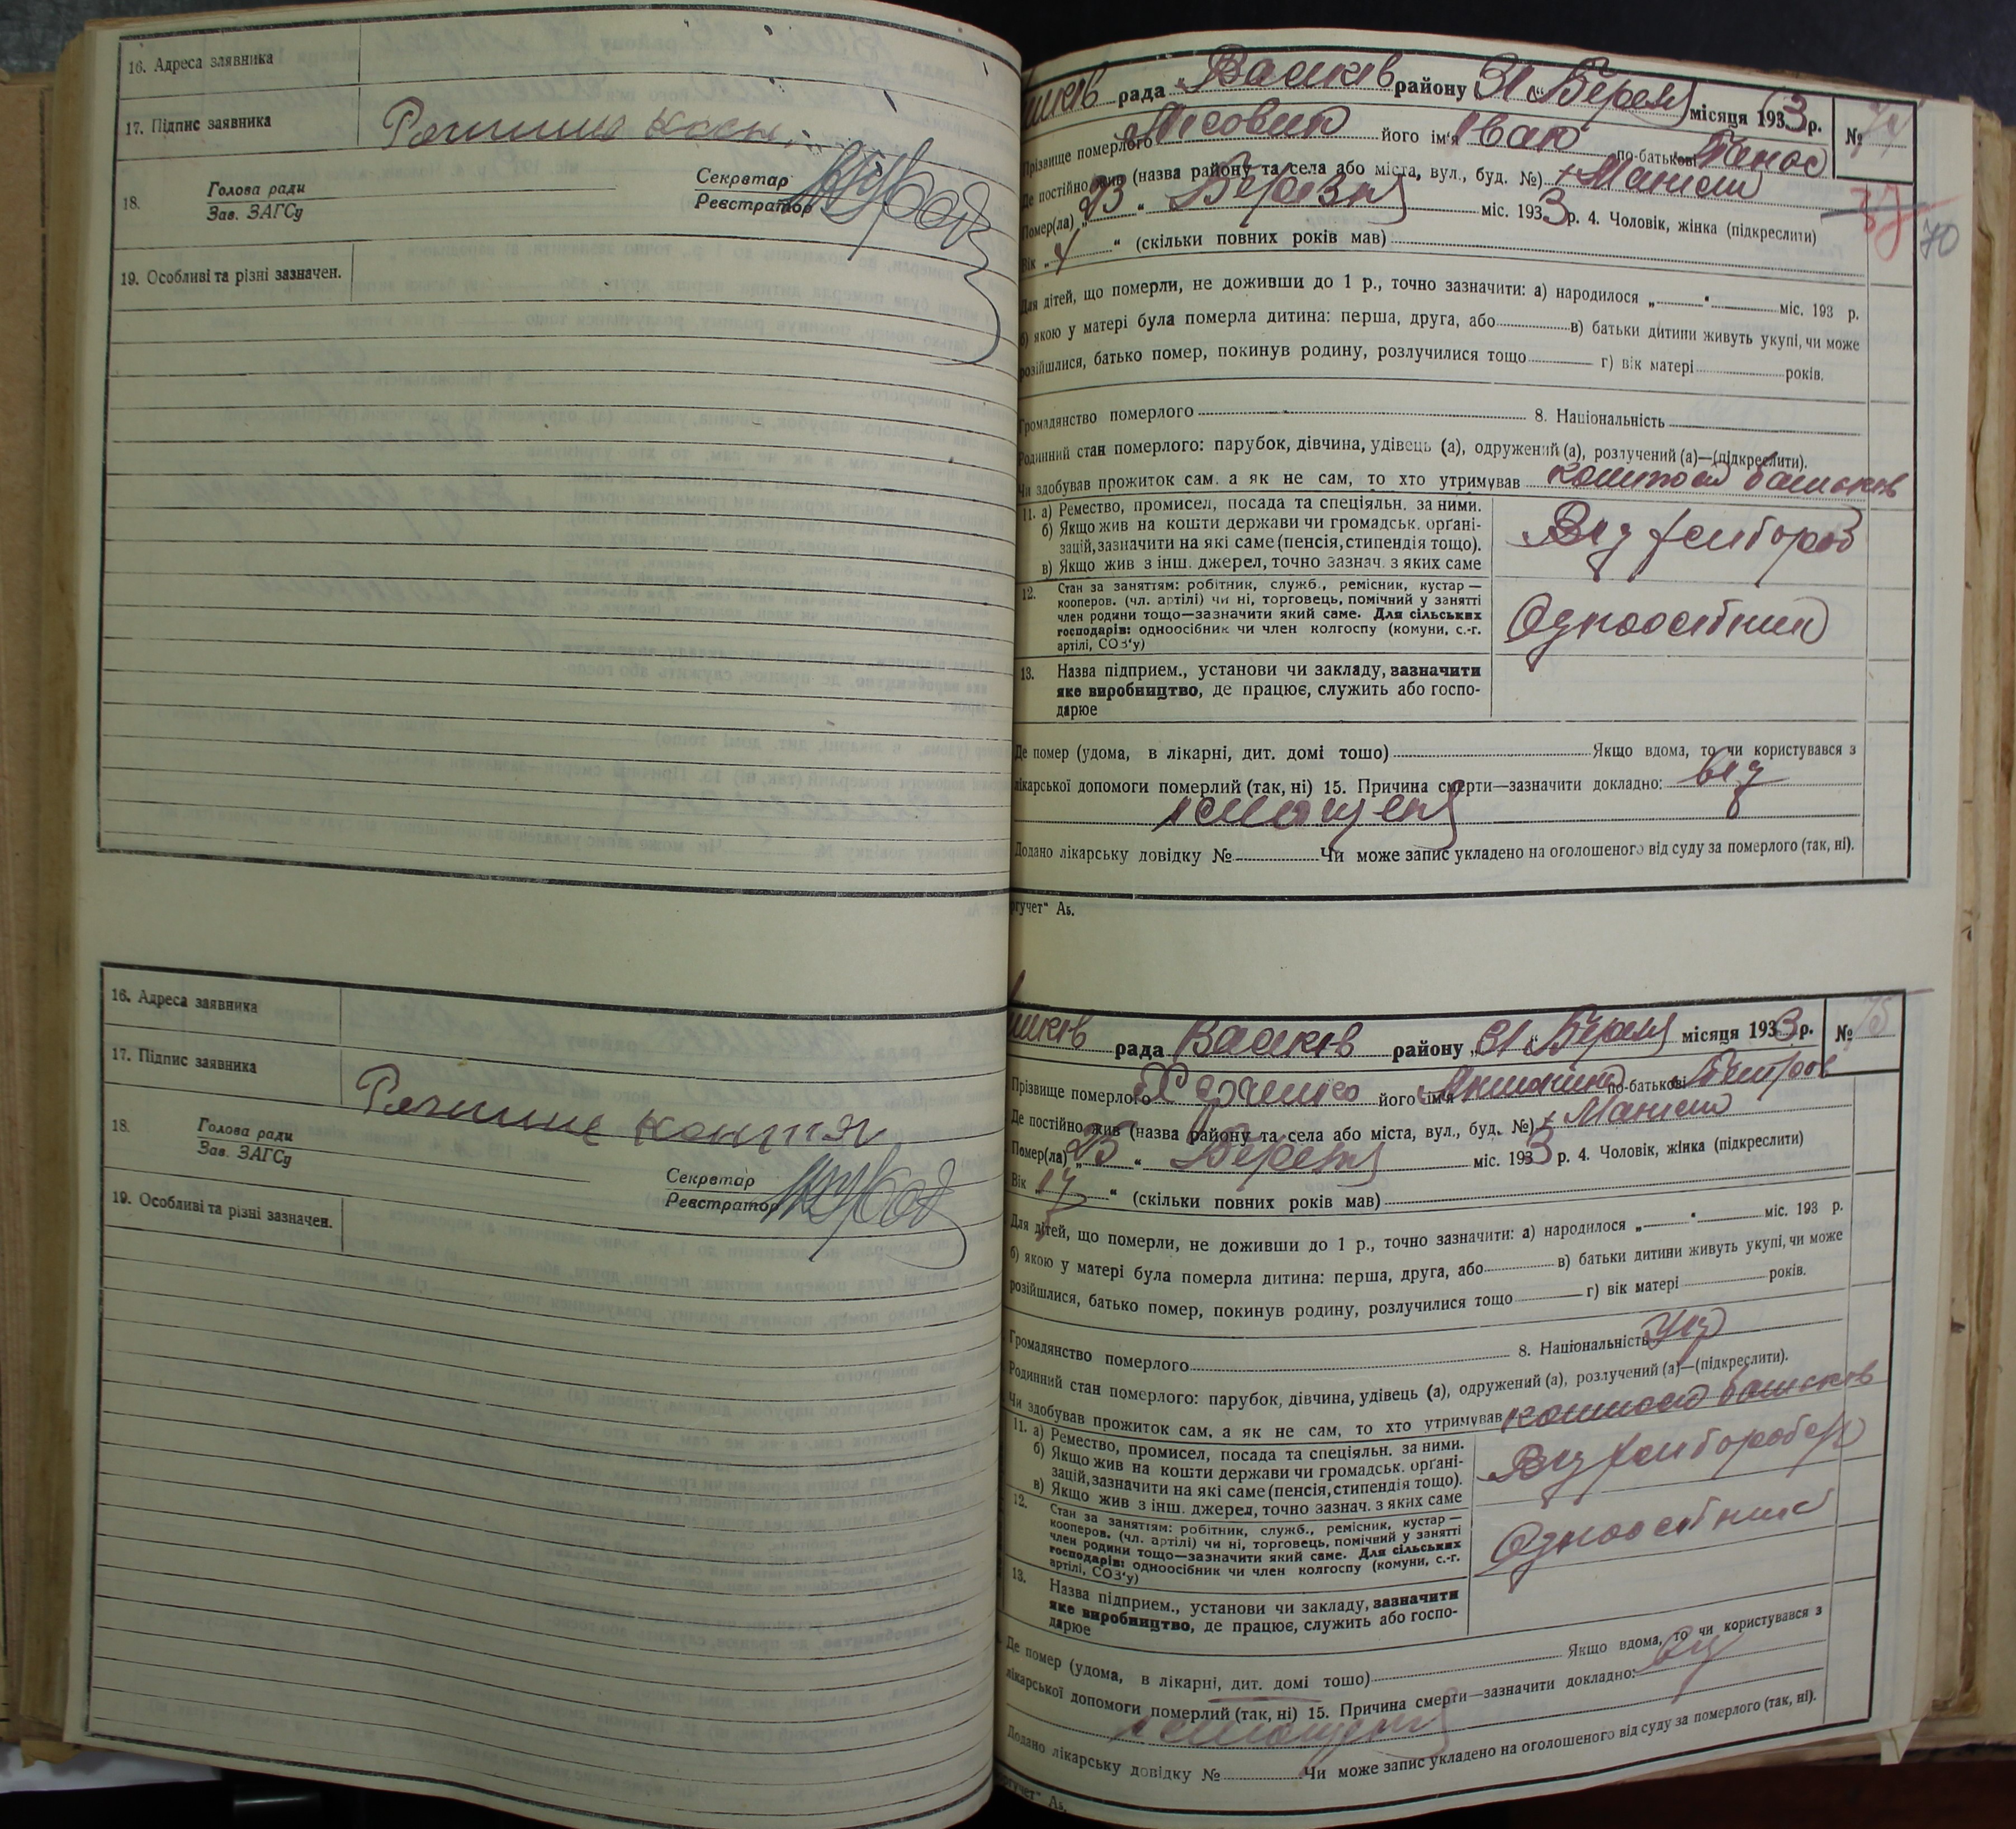 16. Адреса заявника
17. Підпис заявника
18. Голова ради
Зав. ЗАГСу
Секретар
Реєстратор
19. Особливі та різні зазначен.
рада Васиків району 31 Березня місяця 1933 р. №
Прізвище померлого Лісовий його ім'я Іван по-батькові Панас
Де постійно жив (назва району та села або міста, вул., буд. №)
Помер(ла) „23“ Березня міс. 1933 р. 4. Чоловік, жінка (підкреслити)
37
70
Вік „4“ (скільки повних років мав)
Для дітей, що померли, не доживши до 1 р., точно зазначити: а) народилося „ “ міс. 193 р.
б) якою у матері була померла дитина: перша, друга, або в) батьки дитини живуть укупі, чи може
розійшлися, батько помер, покинув родину, розлучилися тощо г) вік матері років.
Громадянство померлого 8. Національність
Родинний стан померлого: парубок, дівчина, удівець (а), одружений (а), розлучений (а)—(підкреслити).
Чи здобував прожиток сам, а як не сам, то хто утримував коштом батьків
11. а) Ремество, промисел, посада та спеціяльн. за ними.
б) Якщо жив на кошти держави чи громадськ. орґані-
зацій, зазначити на які саме (пенсія, стипендія тощо).
в) Якщо жив з інш. джерел, точно зазнач. з яких саме
Від хлібороб
12. Стан за заняттям: робітник, служб., ремісник, кустар —
кооперов. (чл. артілі) чи ні, торговець, помічний у занятті
член родини тощо—зазначити який саме. Для сільських
господарів: одноосібник чи член колгоспу (комуни, с.-г.
артілі, СОЗ'у)
Одноосібник
13. Назва підприєм., установи чи закладу, зазначити
яке виробництво, де працює, служить або госпо-
дарює
Де помер (удома, в лікарні, дит. домі тощо) Якщо вдома, то чи користувався з
лікарської допомоги померлий (так, ні) 15. Причина смерти—зазначити докладно: від
істощеня
Додано лікарську довідку № Чи може запис укладено на оголошеного від суду за померлого (так, ні).
16. Адреса заявника
17. Підпис заявника
18. Голова ради
Зав. ЗАГСу
Секретар
Реєстратор
19. Особливі та різні зазначен.
рада Васиків району „31“ Березня місяця 1933 р. № 75
Прізвище померлого його ім'я по-батькові Петров
Де постійно жив (назва району та села або міста, вул., буд. №)
Помер(ла) „25“ Березня міс. 1933 р. 4. Чоловік, жінка (підкреслити)
Вік „17“ (скільки повних років мав)
Для дітей, що померли, не доживши до 1 р., точно зазначити: а) народилося „ “ міс. 193 р.
б) якою у матері була померла дитина: перша, друга, або в) батьки дитини живуть укупі, чи може
розійшлися, батько помер, покинув родину, розлучилися тощо г) вік матері років.
Громадянство померлого 8. Національність Укр
Родинний стан померлого: парубок, дівчина, удівець (а), одружений (а), розлучений (а)—(підкреслити).
Чи здобував прожиток сам, а як не сам, то хто утримував коштом батьків
11. а) Ремество, промисел, посада та спеціяльн. за ними.
б) Якщо жив на кошти держави чи громадськ. орґані-
зацій, зазначити на які саме (пенсія, стипендія тощо).
в) Якщо жив з інш. джерел, точно зазнач. з яких саме
Від
12. Стан за заняттям: робітник, служб., ремісник, кустар —
кооперов. (чл. артілі) чи ні, торговець, помічний у занятті
член родини тощо—зазначити який саме. Для сільських
господарів: одноосібник чи член колгоспу (комуни, с.-г.
артілі, СОЗ'у)
Одноосібник
13. Назва підприєм., установи чи закладу, зазначити
яке виробництво, де працює, служить або госпо-
дарює
Де помер (удома, в лікарні, дит. домі тощо) Якщо вдома, то чи користувався з
лікарської допомоги померлий (так, ні) 15. Причина смерти—зазначити докладно: від
істощеня
Додано лікарську довідку № Чи може запис укладено на оголошеного від суду за померлого (так, ні).